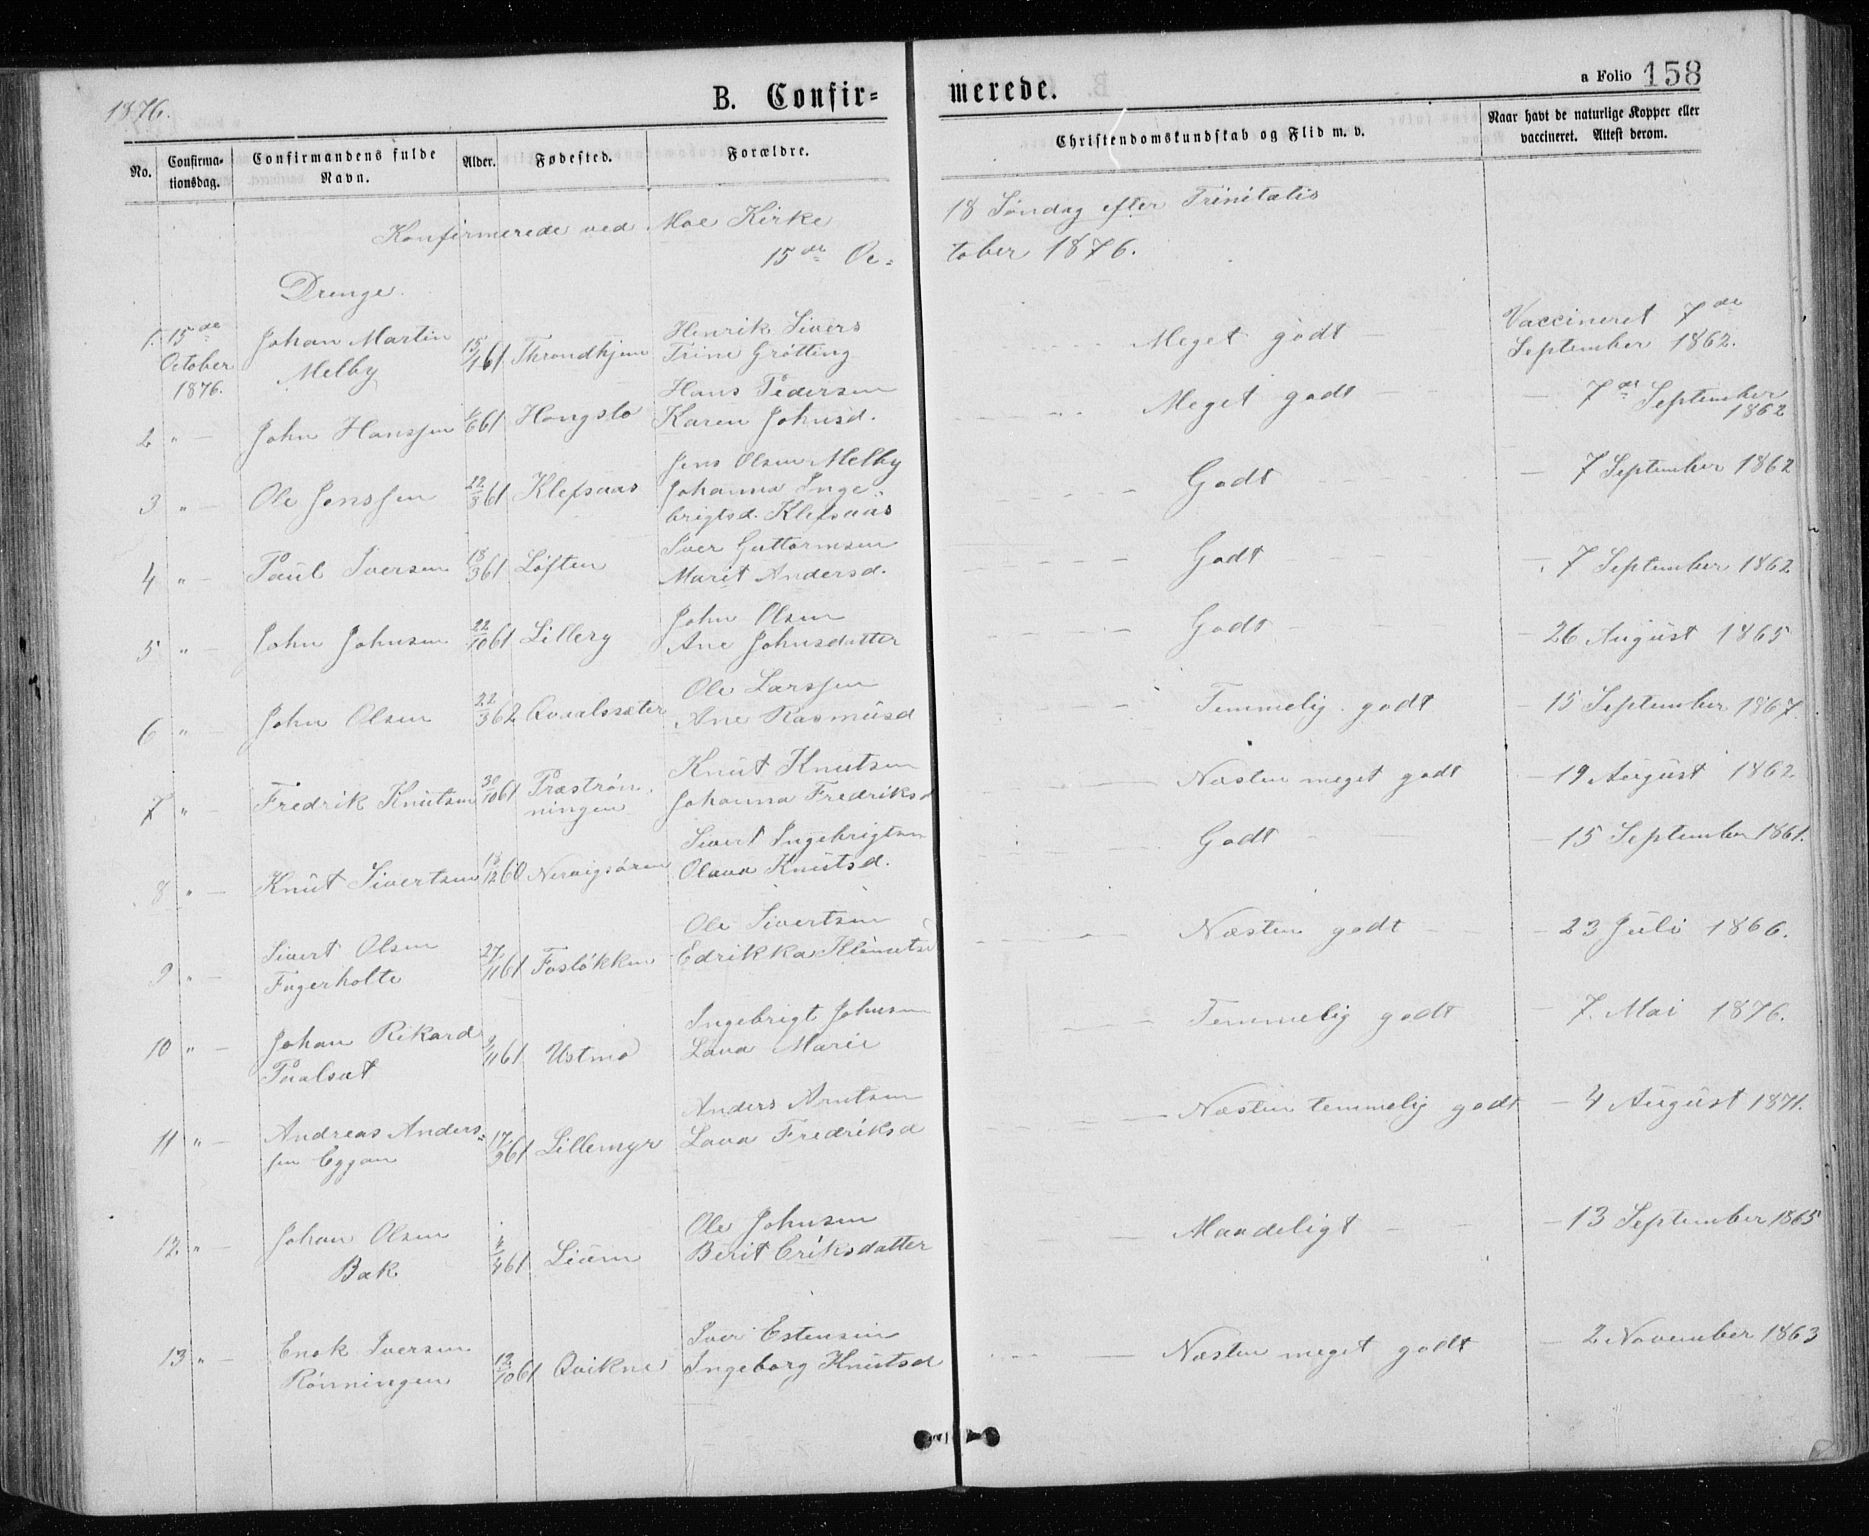 1876.
B. Confir-
merede.
a Folio 158
No.
Confirma-
tionsdag.
Confirmandens fulde
Navn.
Alder.
Fødested.
Forældre.
Christendomskundskab og Flid m. v.
Naar havt de naturlige Kopper eller
vaccineret. Attest derom.
Konfirmerede ved Moe Kirke 18 Søndag efter Trinitatis
15de Oc- tober 1876.
Drenge.
1. 15de October 1876. Johan Martin Melby 15/4 61 Throndhjem Henrik Sivers Trine Grøtting Meget godt Vaccineret 7de September 1862.
2 " Johan Hanssen 1/6 61 Hongslo Hans Pedersen Karen Johnsd. Meget godt 7de September 1862
3 " Ole Jenssen 22/3 61 Klefsaas Jens Olsen Melby Johanna Inge- brigtsd. Klefsaas Godt 7 September 1862
4 " Paul Iversen 18/3 61 Løften Iver Guttormsen Marit Andersd. Godt 7 September 1862
5 " John Johnsen 22/10 61 Lillery John Olsen Ane Johnsdatter Godt 26 August 1865
6 " John Olsen 22/3 62 Qvaalssæter Ole Larssen Ane Rasmusd Temmelig godt 15 September 1867.
7 " Fredrik Knutsen 30/10 61 Præstrøn- ningen Knut Knutsen Johanna Fredriksd Næsten meget godt 19 August 1862.
8 " Knut Sivertsen 18/12 60 Nervigsøren Sivert Ingebrigtsen Olava Knutsd. Godt 15 September 1861.
9 " Sivert Olsen Fagerholte 27/11 61 Fosløkken Ole Sivertsen Edrikka Klemetsd Næsten godt 23 Juli 1866.
10 " Johan Rikard Paalsæt 9/11 61 Ustmo Ingebrigt Johnsen Lava Marie Temmelig godt 7. Mai 1876.
11 " Andreas Anders- sen Eggan 17/9 61 Lillemyr Anders Arntsen Lava Fredriksd Næsten temmelig godt 4 August 1871.
12. " Johan Olsen Bak 4/4 61 Lium Ole Johnsen Berit Eriksdatter Maadeligt 13 September 1865
13 " Enok Iversen Rønningen 12/10 61 Qvikne Iver Estensen Ingeborg Knutsd Næsten meget godt 2 November 1863